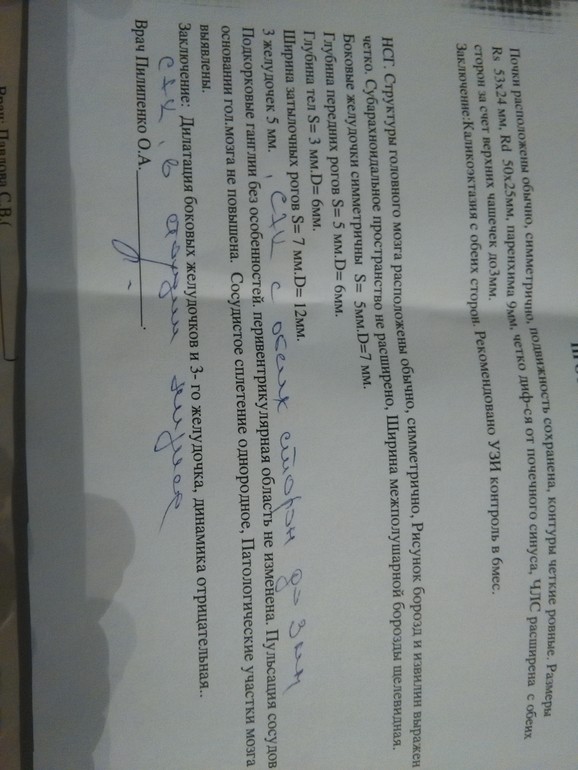 Почки расположены обычно, симметрично, подвижность сохранена, контуры четкие ровные. Размеры
Rs 53x24 мм, Rd 50x25мм, паренхима 9мм, четко диф-ся от почечного синуса, ЧЛС расширена с обеих
сторон за счет верхних чашечек до3мм.
Заключение:Каликоэктазия с обеих сторон. Рекомендовано УЗИ контроль в 6мес.
НСГ. Структуры головного мозга расположены обычно, симметрично, Рисунок борозд и извилин выражен
четко. Субарахноидальное пространство не расширено, Ширина межполушарной борозды щелевидная.
Боковые желудочки симметричны S= 5мм.D=7 мм.
Глубина передних рогов S= 5 мм.D= 6мм.
Глубина тел S= 3 мм.D= 6мм.
Ширина затылочных рогов S= 7 мм.D= 12мм.
3 желудочек 5 мм. , СЛК с обеих сторон d= 3мм
Подкорковые ганглии без особенностей. перивентрикулярная область не изменена. Пульсация сосудов
основании гол.мозга не повышена. Сосудистое сплетение однородное, Патологические участки мозга
выявлены.
Заключение: Дилатация боковых желудочков и 3- го желудочка, динамика отрицательная..
Врач Пилипенко О.А.
Врач: Павлова С.В.(